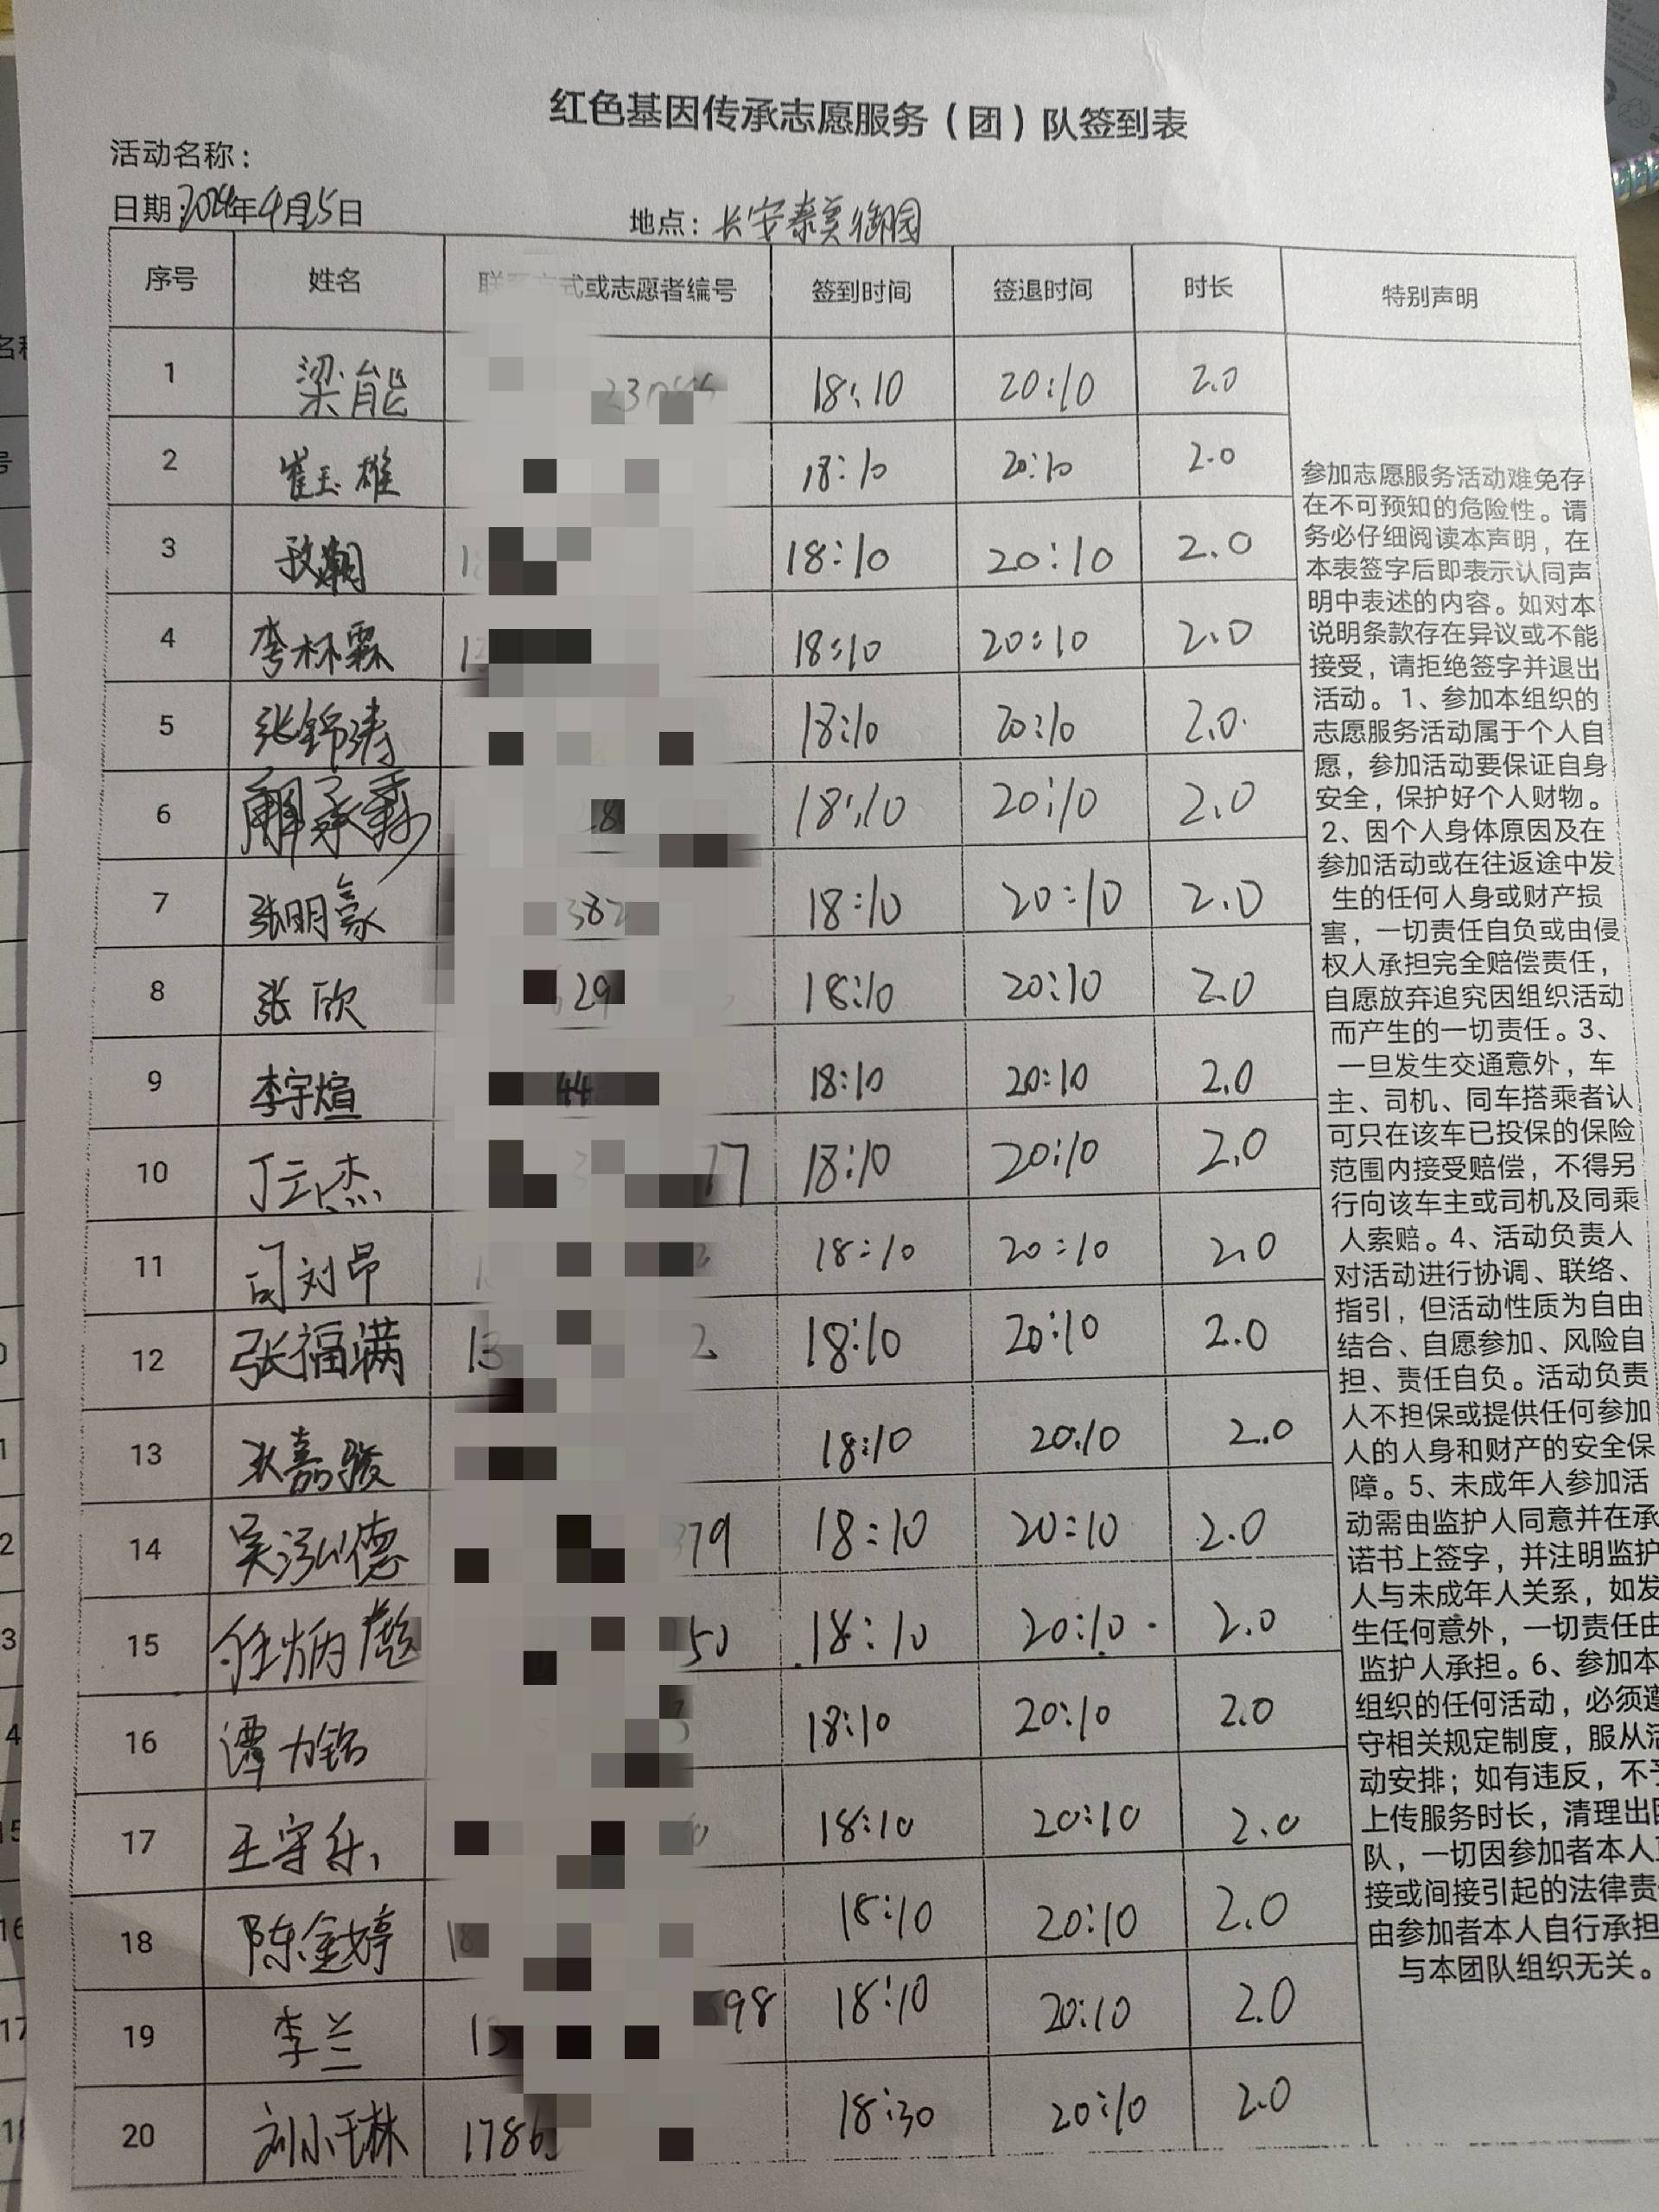 红色基因传承志愿服务（团）队签到表
活动名称：
日期：2024年4月25日 地点：长安泰美御园
序号 姓名 联系方式或志愿者编号 签到时间 签退时间 时长 特别声明
1 梁能 18:10 20:10 2.0
2 崔玉雄 18:10 20:10 2.0
3 18:10 20:10 2.0
4 李林霖 18:10 20:10 2.0
5 张锦涛 18:10 20:10 2.0
6 18:10 20:10 2.0
7 张明豪 382 18:10 20:10 2.0
8 张欣 629 18:10 20:10 2.0
9 李宇煊 44 18:10 20:10 2.0
10 丁云杰 77 18:10 20:10 2.0
11 司刘昂 18:10 20:10 2.0
12 张福满 13 2 18:10 20:10 2.0
13 狄嘉骏 18:10 20:10 2.0
14 吴泓德 379 18:10 20:10 2.0
15 任炳彪 50 18:10 20:10 2.0
16 谭力铭 18:10 20:10 2.0
17 王守乐 18:10 20:10 2.0
18 陈金婷 18 18:10 20:10 2.0
19 李兰 13 598 18:10 20:10 2.0
20 1786 18:30 20:10 2.0
参加志愿服务活动难免存
在不可预知的危险性。请
务必仔细阅读本声明，在
本表签字后即表示认同声
明中表述的内容。如对本
说明条款存在异议或不能
接受，请拒绝签字并退出
活动。1、参加本组织的
志愿服务活动属于个人自
愿，参加活动要保证自身
安全，保护好个人财物。
2、因个人身体原因及在
参加活动或在往返途中发
生的任何人身或财产损
害，一切责任自负或由侵
权人承担完全赔偿责任，
自愿放弃追究因组织活动
而产生的一切责任。3、
一旦发生交通意外，车
主、司机、同车搭乘者认
可只在该车已投保的保险
范围内接受赔偿，不得另
行向该车主或司机及同乘
人索赔。4、活动负责人
对活动进行协调、联络、
指引，但活动性质为自由
结合、自愿参加、风险自
担、责任自负。活动负责
人不担保或提供任何参加
人的人身和财产的安全保
障。5、未成年人参加活
动需由监护人同意并在承
诺书上签字，并注明监护
人与未成年人关系，如发
生任何意外，一切责任由
监护人承担。6、参加本
组织的任何活动，必须遵
守相关规定制度，服从活
动安排；如有违反，不予
上传服务时长，清理出团
队，一切因参加者本人直
接或间接引起的法律责
由参加者本人自行承担
与本团队组织无关。